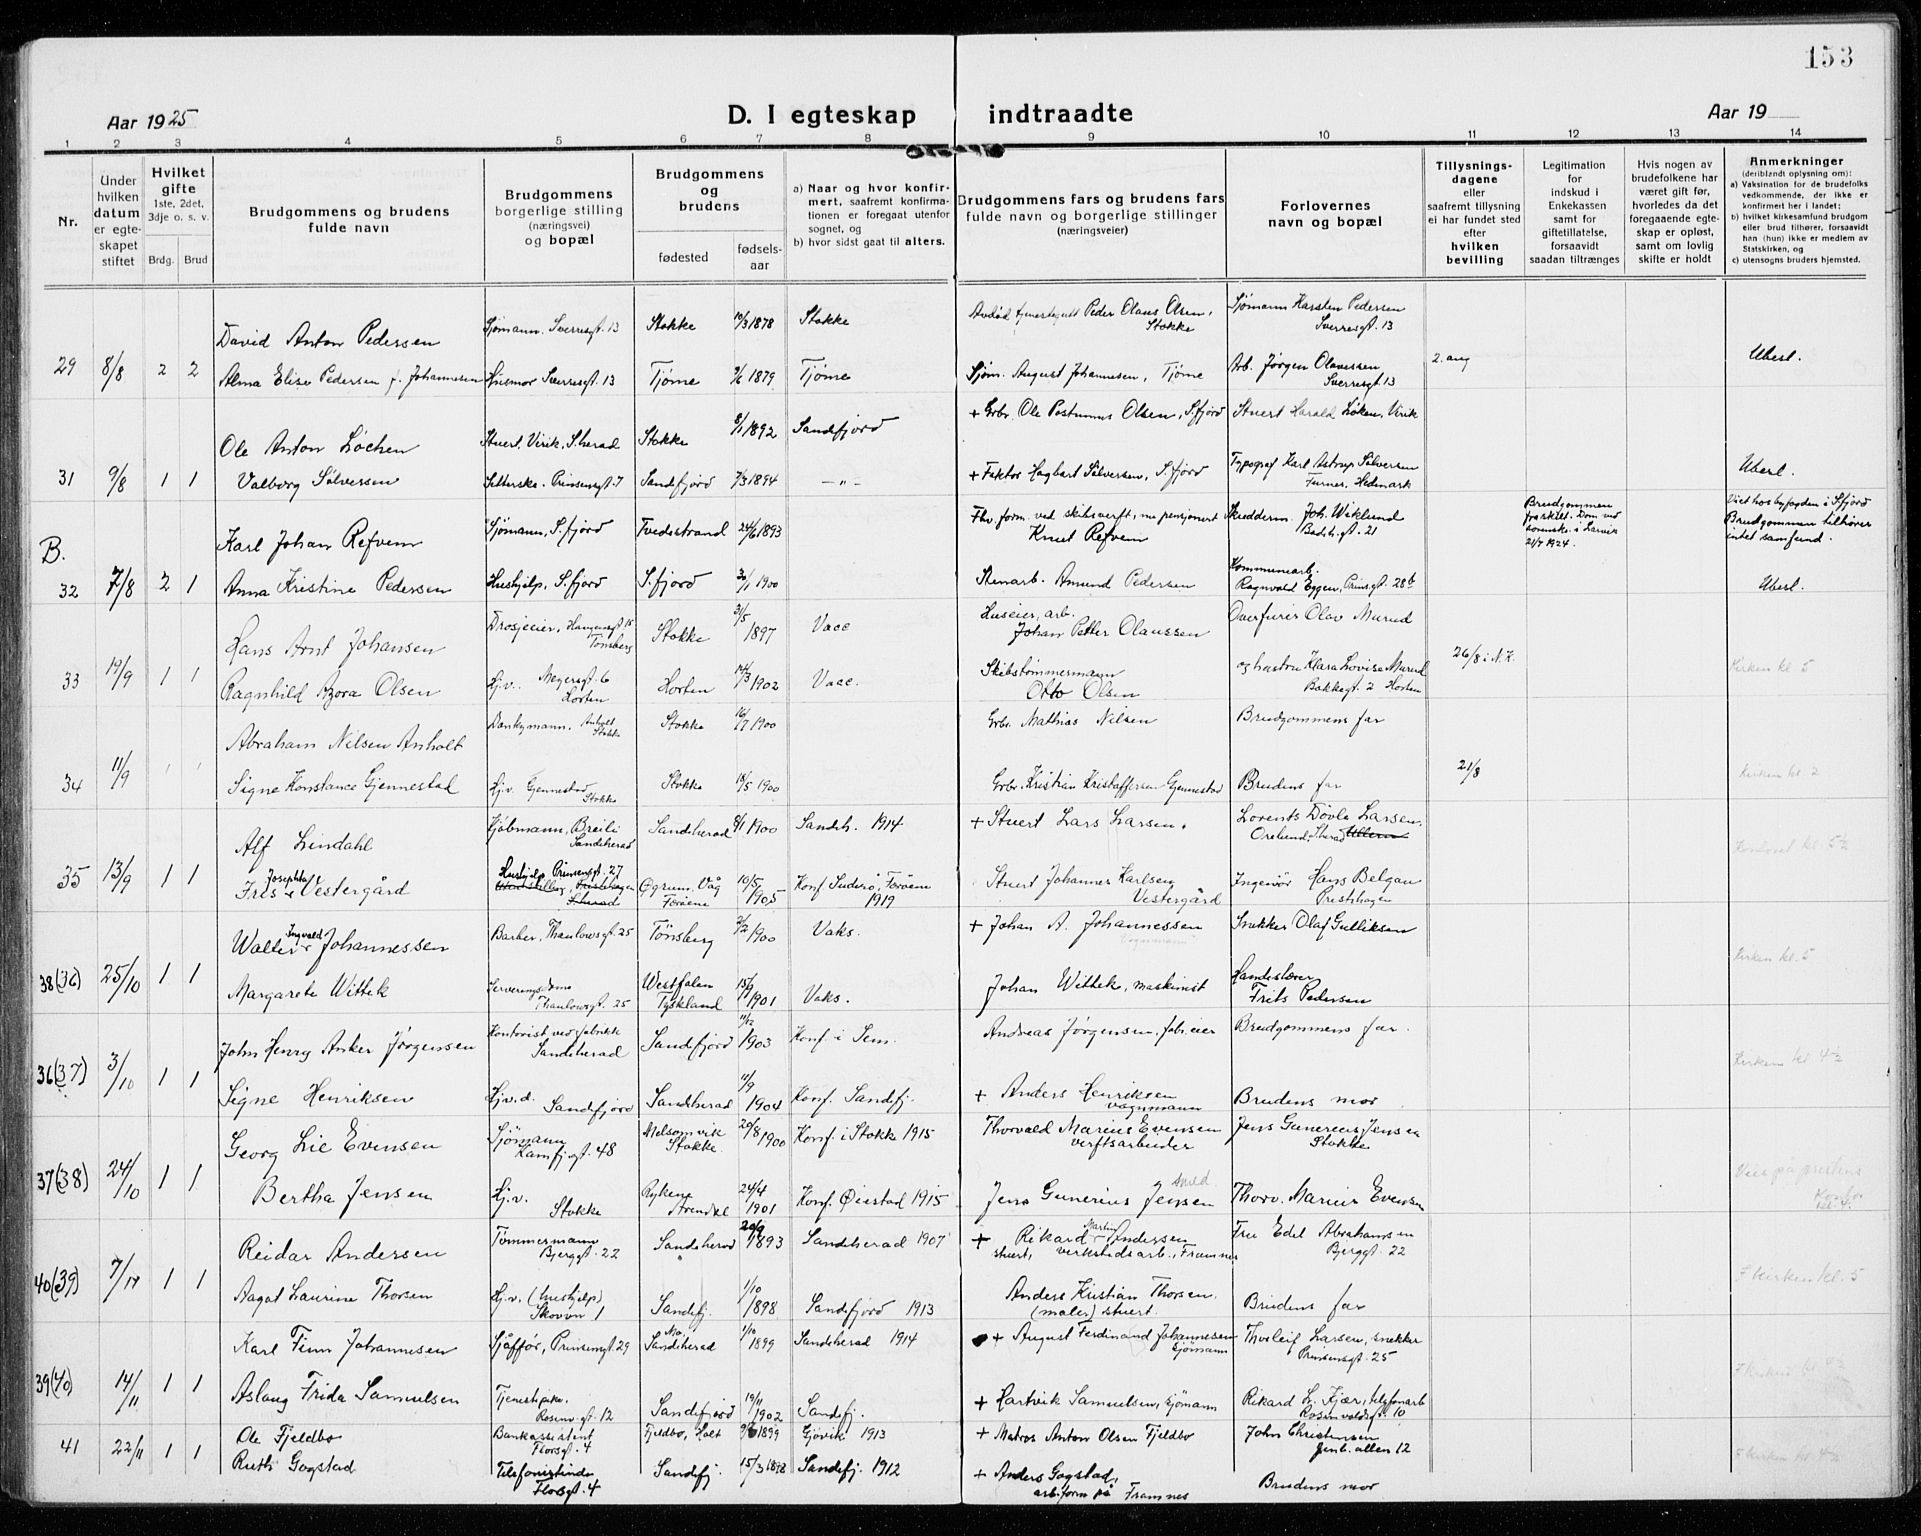 153
Aar 1925
D. I egteskap indtraadte
Aar 19
1 2 3 4 5 6 7 8 9 10 11 12 13 14
Nr.
Under hvilken datum er egteskapet stiftet
Hvilket gifte 1ste, 2det, 3dje o. s. v.
Brdg. Brud
Brudgommens og brudens fulde navn
Brudgommens borgerlige stilling (næringsvei) og bopæl
Brudgommens og brudens
fødested
fødsels-aar
a) Naar og hvor konfirmert, saafremt konfirmationen er foregaat utenfor sognet, og
b) hvor sidst gaat til alters.
Brudgommens fars og brudens fars fulde navn og borgerlige stillinger (næringsveier)
Forlovernes navn og bopæl
Tillysningsdagene eller saafremt tillysning ei har fundet sted efter hvilken bevilling
Legitimation for indskud i Enkekassen samt for giftetillatelse, forsaavidt saadan tiltrænges
Hvis nogen av brudefolkene har været gift før, hvorledes da det foregaaende egteskap er opløst, samt om lovlig skifte er holdt
Anmerkninger (deriblandt oplysning om):
a) Vaksination for de brudefolks vedkommende, der ikke er konfirmert her i landet;
b) hvilket kirkesamfund brudgom eller brud tilhører, forsaavidt han (hun) ikke er medlem av Statskirken, og
c) utensogns bruders hjemsted.
David Anton Pedersen Sjømann. Sverresgt. 13 Stokke 10/3 1878 Stokke Peder Olaus Olsen, Stokke Sjømann Karsten Pedersen Sverresgt. 13
29 8/8 2 2 Alma Elise Pedersen f. Johannesen Husmor Sverresgt. 13 Tjøme 1879 Tjøme Sjøm. August Johannesen, Tjøme Arb. Jørgen Olavessen Sverresgt. 13 2. ang Uberl.
Ole Anton Løchen Stuert, Virik, S.herad Stokke 8/1 1892 Sandefjord + Grbr. Ole Postumus Olsen, S.fjord Stuert Harald Løken, Virik
31 9/8 1 1 Valborg Sølversen Setterske. Prinsensgt. 7 Sandefjord 7/3 1894 — " — + Faktor Hagbart Sølversen, S.fjord Typograf Karl Astrup Sølversen Furnes, Hedmark Uberl.
B. Karl Johan Refvem Sjømann, S.fjord Tvedestrand 24/6 1893 Fhv. form. ved skibsverft, nu pensjonert Knut Refvem Skredderm. Joh. Wiklund Badeh.gt. 21 Brudgommen fraskilt. Dom ved i Larvik 21/7 1924. Viet hos byfogden i S.fjord Brudgommen tilhører intet samfund.
32 7/8 2 1 Anna Kristine Pedersen Hushjelp, S.fjord S.fjord 1900 Stenarb. Amund Pedersen Kommunearb. Ragnvald Eggen, Prinsgt. 28b Uberl.
Hans Arnt Johansen Drosjeeier, Haugesgt 15 Tønsberg Stokke 31/5 1897 Vacc Huseier, arb. Johan Petter Olaussen Overfurer Olav Murud
33 19/9 1 1 Ragnhild Azora Olsen Hj.v. Meyersgt. 6 Horten Horten 14/3 1902 Vacc. Skibstømmermann Otto Olsen og hustru Klara Lovise Murud Bakkegt. 2 Horten 26/8 i N.K. Kirken kl 5
Abraham Nilsen Anholt Dankymann. Anholt Stokke Stokke 16/7 1900 Grbr. Mathias Nilsen Brudgommens far
34 11/9 1 1 Signe Konstance Gjennestad Hj.v. Gjennestad Stokke Stokke 18/5 1900 Grbr. Kristian Kristoffersen Gjennestad Brudens far 21/8 Kirken kl. 2
Alf Lindahl Kjøbmann, Breili Sandeherad Sandeherad 8/1 1900 Sandeh. 1914 + Stuert Lars Larsen. Lorents Døvle Larsen. Orelund, S.herad
35 13/9 1 1 Josephka Vestergård Hushjelp Prinsensgt. 27 Øgrum. Våg Færøene 10/5 1905 Konf Suderø, Færøene 1919 Stuert Johannes Karlsen Vestergård Ingeniør Hans Belgau Prestehagen
Walter Ingvald Johannessen Barber, Thaulowsgt. 25 Tønsberg 2/2 1900 Vaks. + Johan A. Johannessen Vognmann Snekker Olaf Gulliksen
38 (36) 25/10 1 1 Margarete Wittek Serveringsdame Thaulowsgt. 25 Westfalen Tyskland 1901 Vaks. Johan Wittek, maskinist Handelslærer Frits Pedersen Kirken kl. 5
John Henry Anker Jørgensen Kontorist ved fabrikk Sandeherad Sandefjord 11/12 1903 Konf. i Sem. Andreas Jørgensen, fabr.eier Brudgommens far.
36 (37) 3/10 1 1 Signe Henriksen Hj.v.d. Sandefjord Sandeherad 11/9 1904 Konf. Sandefj. + Anders Henriksen vognmann Brudens mor Kirken kl 4½
Georg Lie Evensen Sjømann Kamfjgt. 48 Melsomvik Stokke 20/8 1900 Konf. i Stokke 1915 Thorvald Marius Evensen verftsarbeider Jens Gunerius Jensen Stokke
37 (38) 24/10 1 1 Bertha Jensen Hj.v. Stokke Rykene Arendal 24/4 1901 Konf. Øiestad 1915 Jens Gunerius Jensen Smed Thorv. Marius Evensen Viet på prestens kontor kl. 4.
Reidar Andersen Tømmermann Bjerggt. 22 Sandeherad 20/9 1893 Sandeherad 1907 + Rikard Martin Andersen stuert, verkstedsarb., Framnes Fru Edel Abrahamsen Bjerggt. 22
40 (39) 7/11 1 1 Aagot Laurine Thorsen Hj.v. (hushjelp) Skovvn 1 Sandefj. 1/10 1898 Sandefjord 1913 Anders Kristian Thorsen. (maler) stuert. Brudens far F kirken kl. 5
Karl Finn Johannesen Sjåffør, Prinsensgt. 29 Mo, Sandeherad 1/10 1899 Sandeherad 1914 + August Ferdinand Johannesen Sjømann Thorleif Larsen, snekker Prinsensgt. 25
39 (40) 14/11 1 1 Aslaug Frida Samuelsen Tjenestepike. Rosenv.gt. 12 Sandefjord 19/11 1902 Sandefj. + Hartvik Samuelsen, sjømann Rikard L. Kjær, telefonarb Rosenvoldsgt. 10
41 22/11 1 1 Ole Fjeldbo Bankassistent Florsgt. 4 Fjeldbo, Holt 1899 Gjøvik 1913 + Matros Anton Olsen Fjeldbo John Christensen Jernb. alleen 12
Ruth Gogstad Telefonistinde Florsgt. 4 Sandefj. 15/3 1898 Sandefj. 1912 + Anders Gogstad, arb.form på Framnes Brudens mor